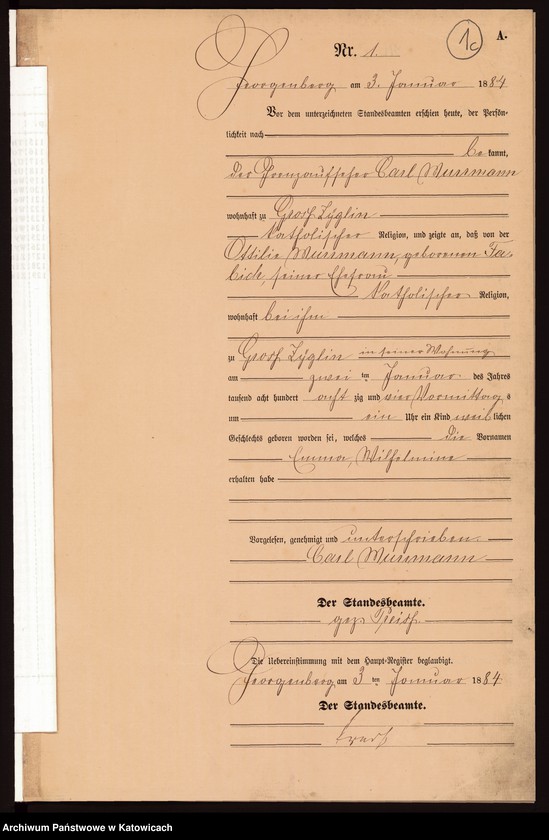 1c
A.
Nr. 1.
Georgenberg am 3. Januar 1884
Vor dem unterzeichneten Standesbeamten erschien heute, der Persön-
lichkeit nach
bekannt,
der Grenzaufseher Carl Mussmann
wohnhaft zu Groß Zyglin
katholischer Religion, und zeigte an, daß von der
Ottilie Mussmann, geborenen Fa-
bich, seiner Ehefrau
katholischer Religion,
wohnhaft bei ihm
zu Groß Zyglin in seiner Wohnung
am zwei ten Januar des Jahres
tausend acht hundert acht zig und vier Vormittag s
um ein Uhr ein Kind weib lichen
Geschlechts geboren worden sei, welches die Vornamen
Emma, Wilhelmine
erhalten habe
Vorgelesen, genehmigt und unterschrieben.
Carl Mussmann
Der Standesbeamte.
gez.
Die Uebereinstimmung mit dem Haupt-Register beglaubigt.
Georgenberg am 3 ten Januar 1884
Der Standesbeamte.
Archiwum Państwowe w Katowicach